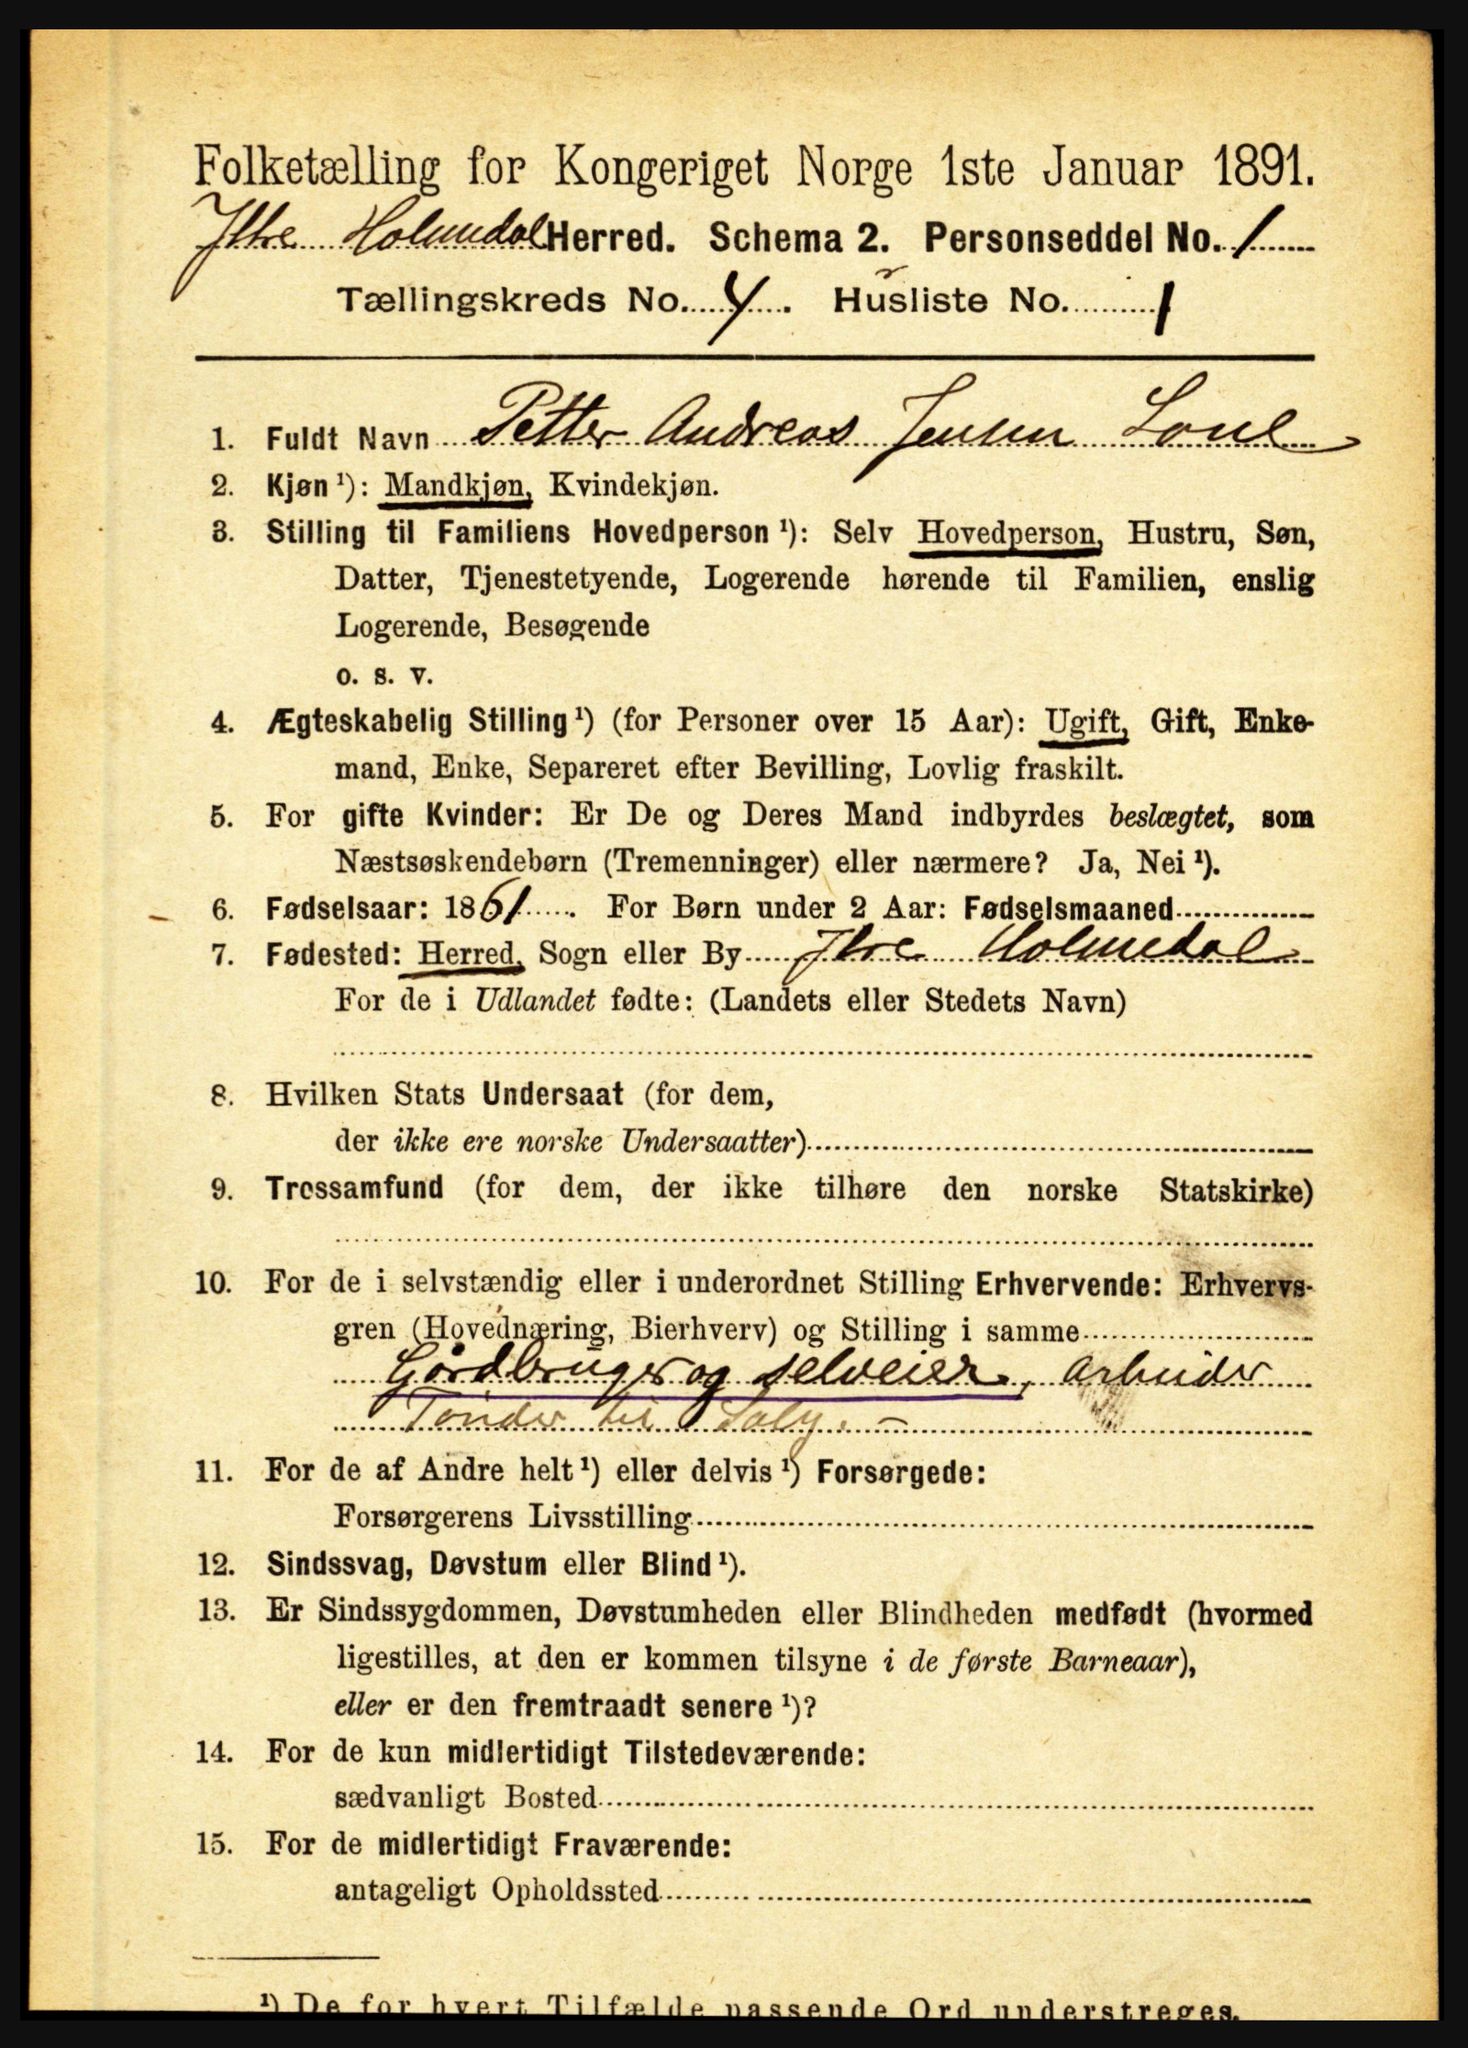 Folketælling for Kongeriget Norge 1ste Januar 1891.
Ytre Holmedal Herred. Schema 2. Personseddel No. 1
Tællingskreds No. 4. Husliste No. 1
1. Fuldt Navn Petter Andreas Jensen
2. Kjøn ¹): Mandkjøn, Kvindekjøn.
3. Stilling til Familiens Hovedperson ¹): Selv Hovedperson, Hustru, Søn,
Datter, Tjenestetyende, Logerende hørende til Familien, enslig
Logerende, Besøgende
o. s. v.
4. Ægteskabelig Stilling ¹) (for Personer over 15 Aar): Ugift, Gift, Enke-
mand, Enke, Separeret efter Bevilling, Lovlig fraskilt.
5. For gifte Kvinder: Er De og Deres Mand indbyrdes beslægtet, som
Næstsøskendebørn (Tremenninger) eller nærmere? Ja, Nei ¹).
6. Fødselsaar: 1861. For Børn under 2 Aar: Fødselsmaaned
7. Fødested: Herred, Sogn eller By Ytre Holmedal
For de i Udlandet fødte: (Landets eller Stedets Navn)
8. Hvilken Stats Undersaat (for dem,
der ikke ere norske Undersaatter)
9. Trossamfund (for dem, der ikke tilhøre den norske Statskirke)
10. For de i selvstændig eller i underordnet Stilling Erhvervende: Erhvervs-
gren (Hovednæring, Bierhverv) og Stilling i samme
Gårdbruger og selveier, arbeider
Tønder til Salg. -
11. For de af Andre helt ¹) eller delvis ¹) Forsørgede:
Forsørgerens Livsstilling
12. Sindssvag, Døvstum eller Blind ¹).
13. Er Sindssygdommen, Døvstumheden eller Blindheden medfødt (hvormed
ligestilles, at den er kommen tilsyne i de første Barneaar),
eller er den fremtraadt senere ¹)?
14. For de kun midlertidigt Tilstedeværende:
sædvanligt Bosted
15. For de midlertidigt Fraværende:
antageligt Opholdssted
¹) De for hvert Tilfælde passende Ord understreges.